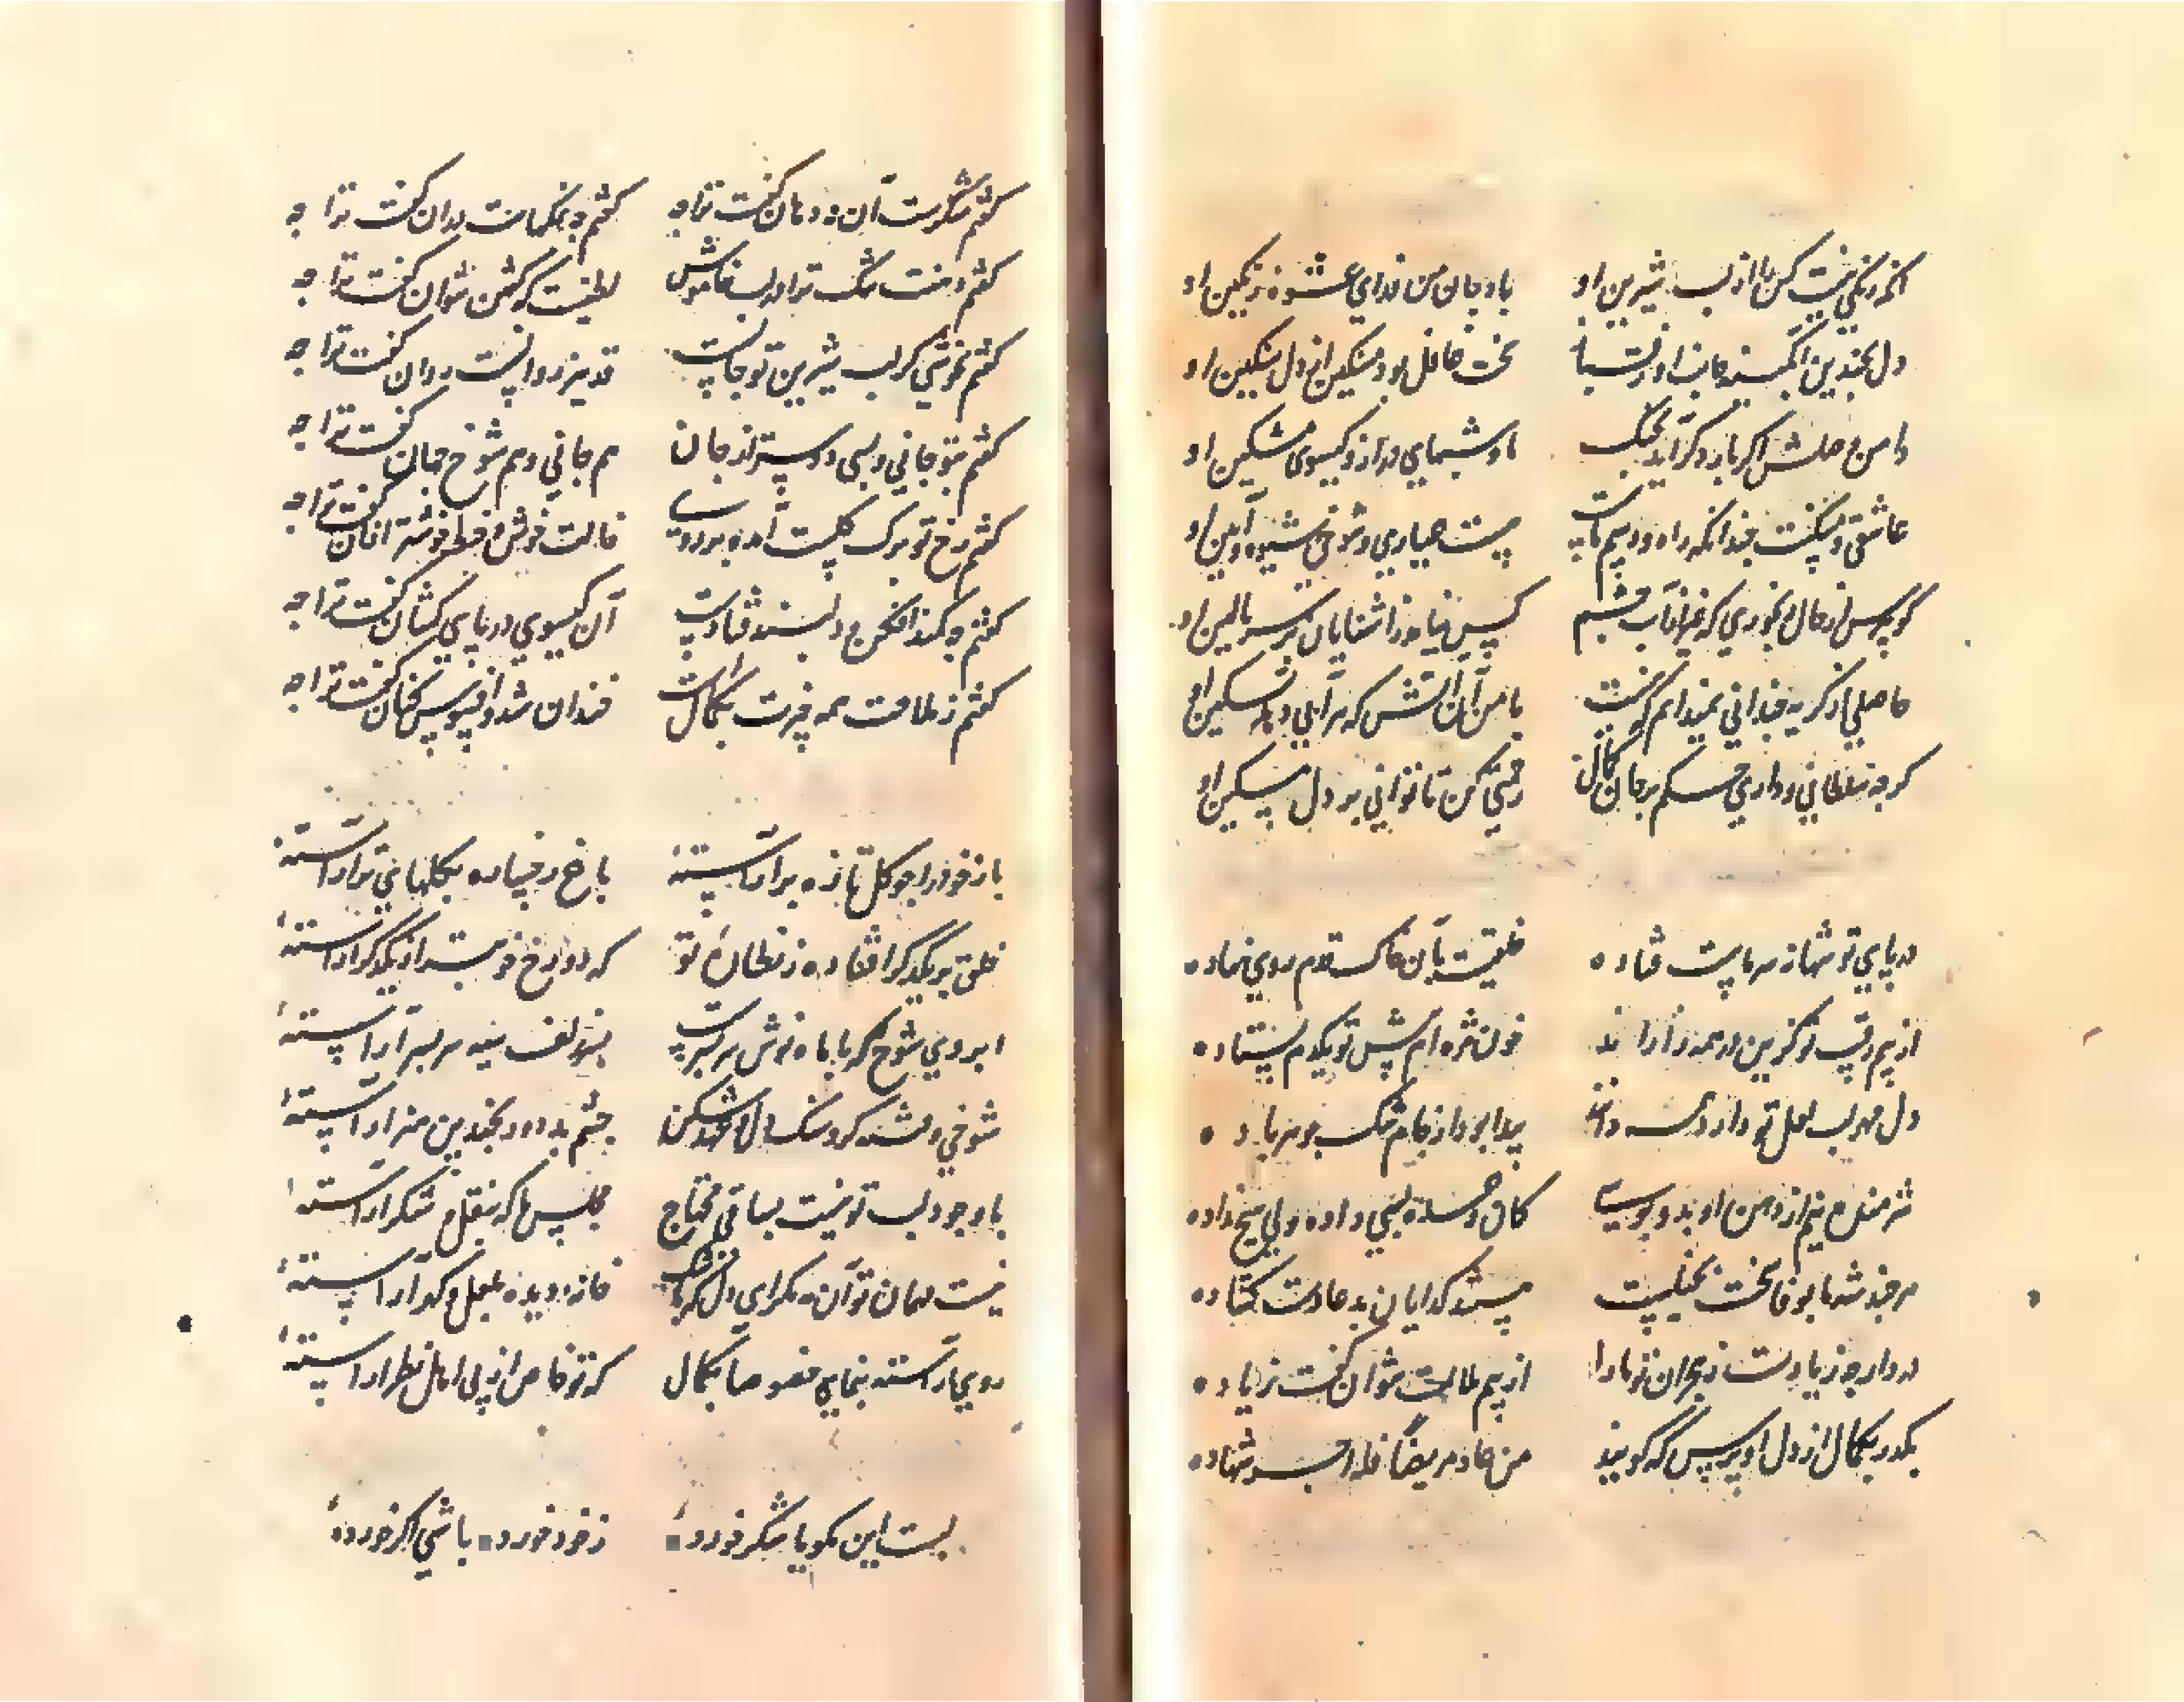 آنکه رنگی نیست کس را از لب شیرین او باد جان من فدای عشوه رنگین او
دل بچندین آبگینه خانه او در نشاند سخت غافل بود مسکین از دل سنگین او
دامن وصلش اگر بار دگر آید بچنگ ما و شبهای دراز و گیسوی مشکین او
عاشقی و مسکنت چندانکه راه و رسم ماست هست عیاری و شوخی شیوه و آیین او
کو بپرس از حال رنجوری که غیر از آب چشم کس نیامد ز آشنایان بر سر بالین او
حاصلی از گریه چندانی نمیدانم که چیست با من آن آتش که بر آبی دهد تسکین او
گرچه سلطانی و داری حکم بر جان کمال رحمتی کن تا توانی بر دل مسکین او
در پای تو تنها نه سر ماست فتاده خلقیست بآن خاک قدم روی نهاده
از بیم رقیب تو گزین در همه را راند خون مژه ام پیش تو یکدم نستاده
دل مهر لب لعل تو دارد
شرمنده نیم از دهن او بدو بوسی کان وعده بسی داده ولی هیچ نداده
هرچند شها بوفا سخت بخیلیست هستند گدایان بدعا دست گشاده
درد ارچه زیادست ز هجران تو ما را از بیم ملالت نتوان گفت زیاده
یکدر بکمال از دل او پرس که گویند من عاد مریضا فله اجر شهاده
گفتم شکرست آن نه دهان گفت ترا چه گفتم چه نمکهاست بدان گفت ترا چه
گفتم دهنت تنگ ترا در لب خاموش لطفیست که گفتن نتوان گفت ترا چه
گفتم بخوشی گر لب شیرین تو جانست قد نیز روانست روان گفت ترا چه
گفتم بتو جانی و بسی دوستر از جان هم جانی و هم شوخ جهان گفت ترا چه
گفتم رخ تو برگ گلست آمده بر روی خالت خوش و خط خوشتر از آن گفت ترا چه
گفتم چه کمند افکن و دلبند فتادست آن گیسوی در پای کشان گفت ترا چه
گفتم ز لطافت همه چیزت بکمال است خندان شد و افسوس کنان گفت ترا چه
باز خود را چو گل تازه برآراسته باغ رخساره بگلهای تر آراسته
خلق بر یکدگر افتاده ز نظاره تو که دو رخ خوبتر از یکدگر آراسته
ابروی شوخ که با ماه نوش سر بسرست بدو زلف سیه سر بسر آراسته
شوخی و فتنه گر و سنگ دل و عهد شکن چشم بد دور بچندین هنر آراسته
با وجود لب تو نیست بساقی محتاج مجلس ما که بنقل و شکر آراسته
نیست مهمان تو آن مه مگر ای دل که خانه دیده بلعل و گهر آراسته
روی آراسته بنمای خصوصا بکمال که تو خاص از پی اهل نظر آراسته
لبست این بگو یا شکر خورده ز خود خورده باشی اگر خورده